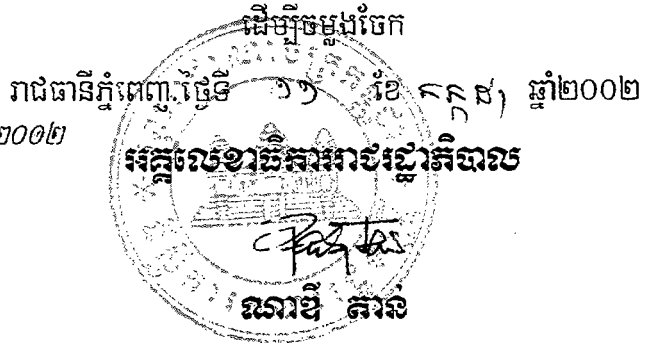 ដើម្បីចម្លងចែក
រាជធានីភ្នំពេញ ថ្ងៃទី ១១ ខែ កក្កដា ឆ្នាំ២០០២
២០០២
អគ្គលេខាធិការរាជរដ្ឋាភិបាល
ណាឌី តាន់